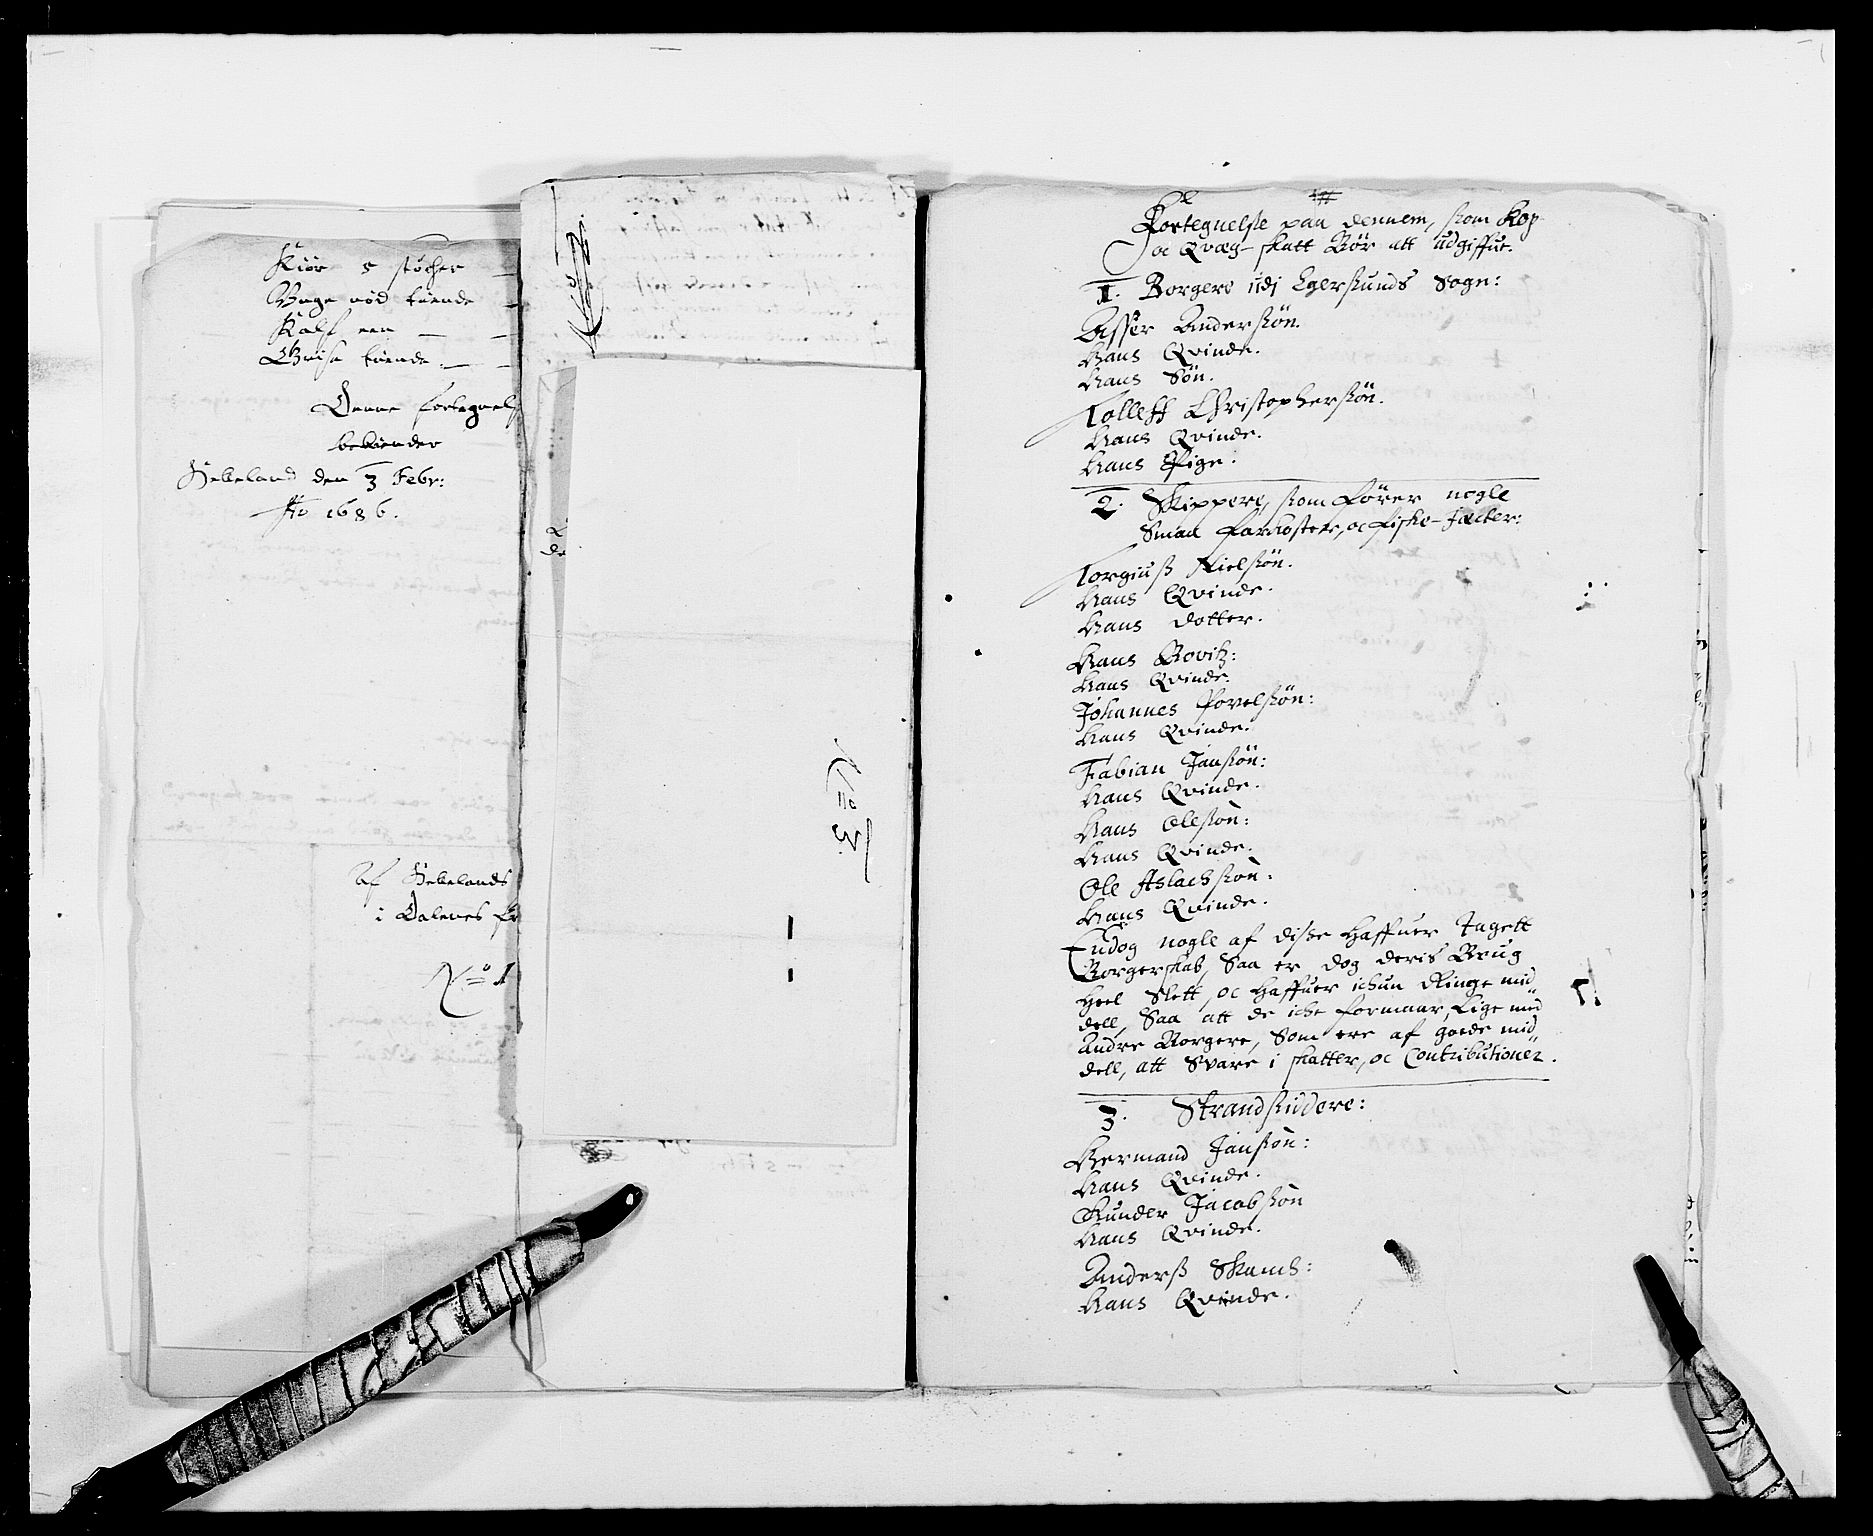 Kiør 5 støcher
Unge nød tuende
Kalf een
Grise tuende
Denne fortegnels
bekiender
Helleland den 3 Febr:
Ao 1686.
Af Hellelands
i Dalernes
No 1
No 3.
Fortegnelsse paa dennem, som Kop-
oc Qvæg-skatt Bør att udgiffue.
1. Borgere udj Egersunds Sogn:
Asser Anderssøn.
Hans Qvinde.
Hans Søn.
Tolleff Christopherssøn.
Hans Qvinde.
Hans Pige:
2. Skippere, som fører nogle
Smaa farkoster, oc fiske-Jacter:
Torgiuss Nielssøn.
Hans Qvinde.
Hans dotter.
Hans Bovitz:
Hans Qvinde.
Johannes Povelssøn:
Hans Qvinde.
Fabian Janssøn:
Hans Qvinde.
Hans Olessøn:
Hans Qvinde.
Ole Aslachssøn:
Hans Qvinde.
Endog nogle af disse haffuer Tagett
Borgerskab, Saa er dog deris Brug
heel Slett, oc haffuer ichun Ringe mid
dell, Saa att de iche formaar, Lige med
Andre Borgere, Som ere af goede mid
dell, att Svare i skatter, oc Contributioner.
3. Strandsiddere:
Hermand Janssøn:
Hans Qvinde.
Gunder Jacobssøn
Hans Qvinde.
Anderss
Hans Qvinde.